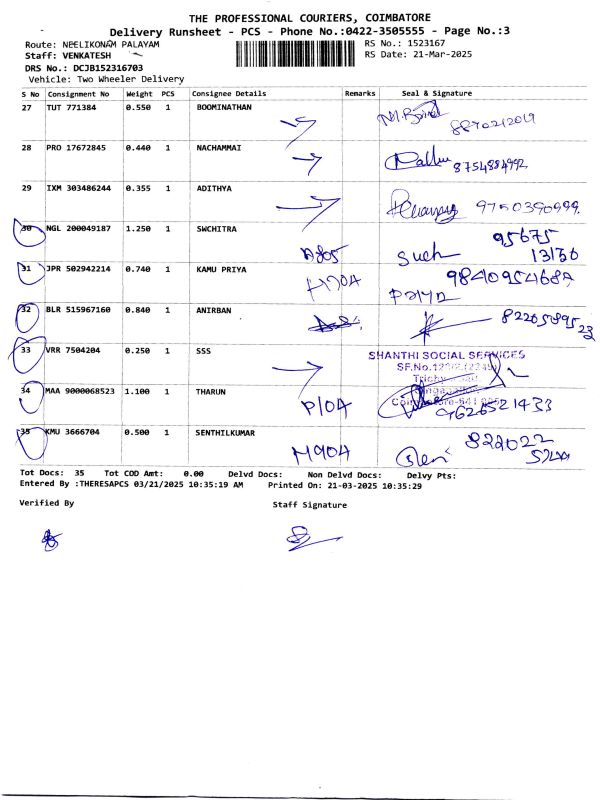 THE PROFESSIONAL COURIERS, COIMBATORE
Delivery Runsheet - PCS - Phone No.:0422-3505555 - Page No.:3
Route: NEELIKONAM PALAYAM RS No.: 1523167
Staff: VENKATESH RS Date: 21-Mar-2025
DRS No.: DCJB152316703
Vehicle: Two Wheeler Delivery
S No Consignment No Weight PCS Consignee Details Remarks Seal & Signature
27 TUT 771384 0.550 1 BOOMINATHAN
8870212019
28 PRO 17672845 0.440 1 NACHAMMAI
8754884992
29 IXM 303486244 0.355 1 ADITHYA
9750390999
30 NGL 200049187 1.250 1 SWCHITRA
A805 Such 95675
13136
31 JPR 502942214 0.740 1 KAMU PRIYA
H704 Priya
32 BLR 515967160 0.840 1 ANIRBAN
33 VRR 7504204 0.250 1 SSS
SHANTHI SOCIAL SERVICES
34 MAA 9000068523 1.100 1 THARUN
P104 9626521433
35 KMU 3666704 0.500 1 SENTHILKUMAR
M904 822022
Tot Docs: 35 Tot COD Amt: 0.00 Delvd Docs: Non Delvd Docs: Delvy Pts:
Entered By :THERESAPCS 03/21/2025 10:35:19 AM Printed On: 21-03-2025 10:35:29
Verified By Staff Signature